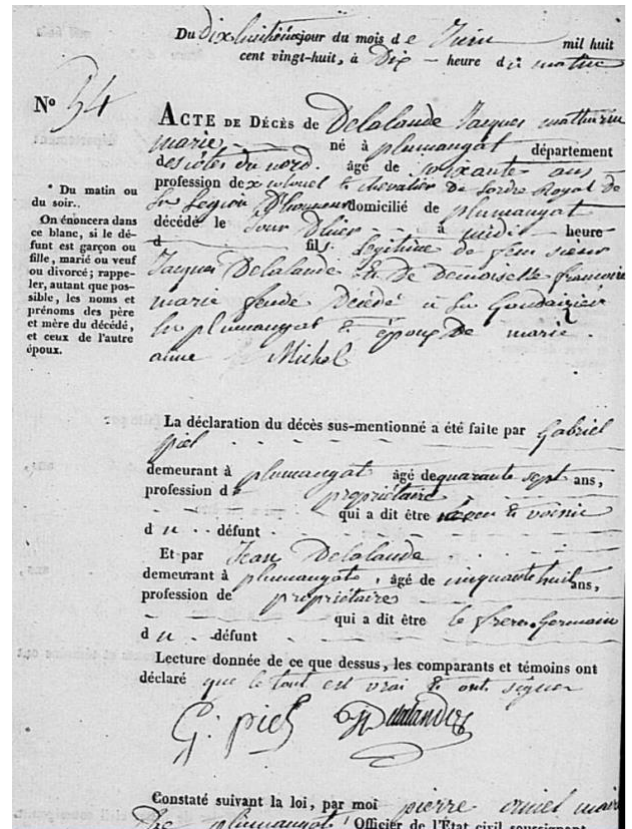 Du dix huitième jour du mois de Juin mil huit
cent vingt-huit, à Dix - heure du matin
N° 54
ACTE DE DÉCÈS de Delalande Jacques mathurin
marie né à plumaugat département
des côtes du nord. âgé de soixante ans
profession de x colonel & chevalier de lordre Royal de
la Légion D'honneur domicilié de plumaugat
décédé le Jour D'hier à midi heure
d fils légitime de feu sieur
Jacques Delalande & De Demoiselle francoise
marie feude Décédé à la
en plumaugat & époux De marie
anne Michel
* Du matin ou
du soir.
On énoncera dans
ce blanc, si le dé-
funt est garçon ou
fille, marié ou veuf
ou divorcé; rappe-
ler, autant que pos-
sible, les noms et
prénoms des père
et mère du décédé,
et ceux de l'autre
époux.
La déclaration du décès sus-mentionné a été faite par Gabriel
piel
demeurant à plumaugat âgé de quarante sept ans,
profession de propriétaire
qui a dit être & voisin
du défunt
Et par Jean Delalande
demeurant à plumaugat, âgé de cinquante huit ans,
profession de propriétaire
qui a dit être le frere Germain
du défunt
Lecture donnée de ce que dessus, les comparants et témoins ont
déclaré que le tout est vrai & ont signer
G. piel Delalande
Constaté suivant la loi, par moi pierre maire
De plumaugat Officier de l'État civil soussigné